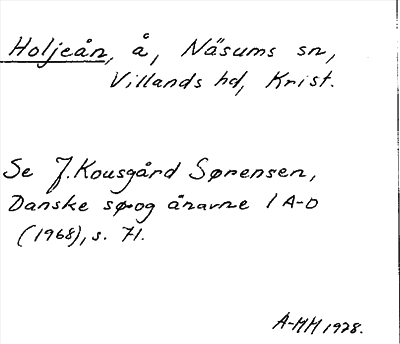 Holjeån, å, Näsums sn,
Villands hd, Krist.
Se J. Kousgård Sørensen,
Danske sø- og ånavne 1 A-D
(1968), s. 71.
A-HH 1978.